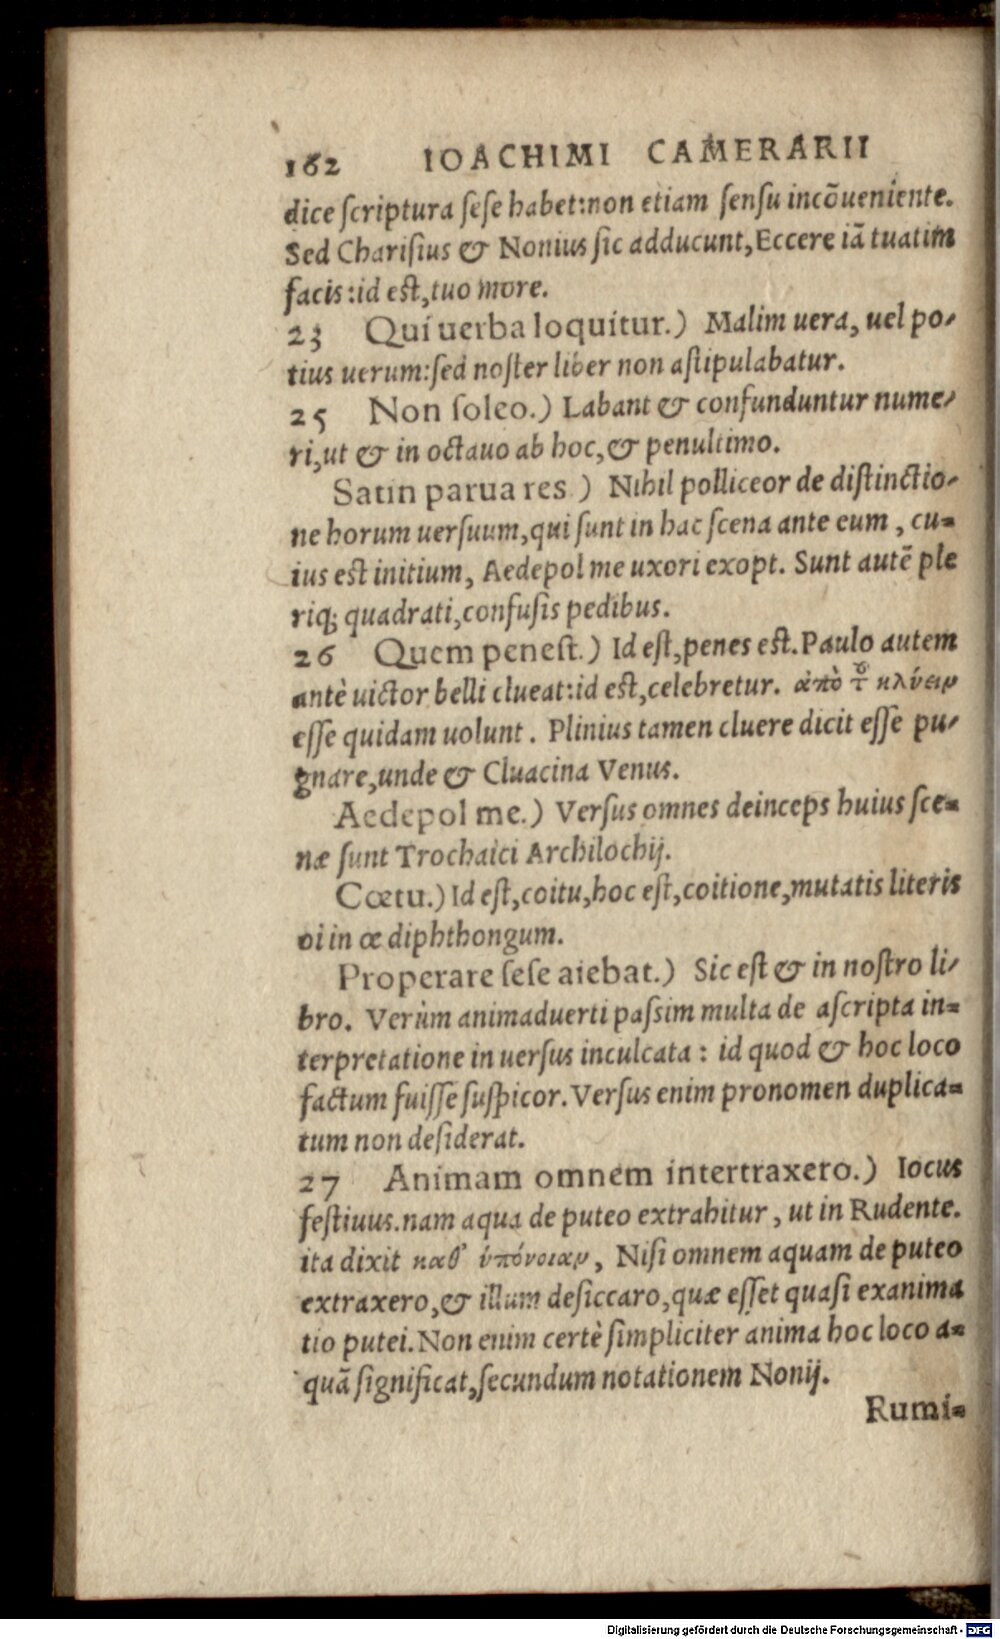 162 IOACHIMI CAMERARII
dice ſcriptura ſeſe habet:non etiam ſenſu incõueniente.
Sed Chariſius & Nonius ſic adducunt,Eccere iã tuatim
facis:id eſt,tuo more.
23 Qui uerba loquitur.) Malim uera, uel po-
tius uerum:ſed noſter liber non aſtipulabatur.
25 Non ſoleo.) Labant & confunduntur nume-
ri,ut & in octauo ab hoc,& penultimo.
Satin parua res.) Nihil polliceor de diſtinctio-
ne horum uerſuum,qui ſunt in hac ſcena ante eum, cu=
ius est initium, Aedepol me uxori exopt. Sunt autẽ ple
riq; quadrati,confuſis pedibus.
26 Quem peneſt.) Id eſt,penes est.Paulo autem
antè uictor belli clueat:id est,celebretur. ἀπὸ τ͂ κλύειν
eſſe quidam uolunt. Plinius tamen cluere dicit eſſe pu-
gnare,unde & Cluacina Venus.
Aedepol me.) Verſus omnes deinceps huius ſce=
næ ſunt Trochaici Archilochij.
Cœtu.) Id eſt,coitu,hoc eſt,coitione,mutatis literis
oi in œ diphthongum.
Properare ſeſe aiebat.) Sic eſt & in noſtro li-
bro. Verùm animaduerti paſsim multa de aſcripta in=
terpretatione in uerſus inculcata: id quod & hoc loco
factum fuiſſe ſuſpicor. Verſus enim pronomen duplica=
tum non deſiderat.
27 Animam omnem intertraxero.) Iocus
feſtiuus.nam aqua de puteo extrahitur, ut in Rudente.
ita dixit καθ' ὑπόνοιαν, Niſi omnem aquam de puteo
extraxero,& illum deſiccaro,quæ eſſet quaſi exanima
tio putei. Non enim certè ſimpliciter anima hoc loco a=
quã ſignificat,ſecundum notationem Nonij.
Rumi=
Digitalisierung gefördert durch die Deutsche Forschungsgemeinschaft - DFG